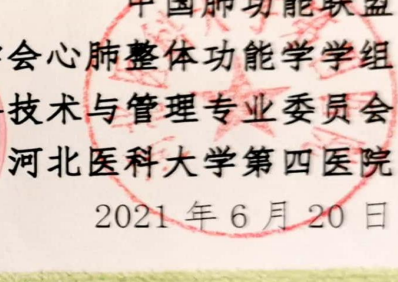 中国肺功能联盟
学会心肺整体功能学学组
技术与管理专业委员会
河北医科大学第四医院
2021 年 6 月 20 日